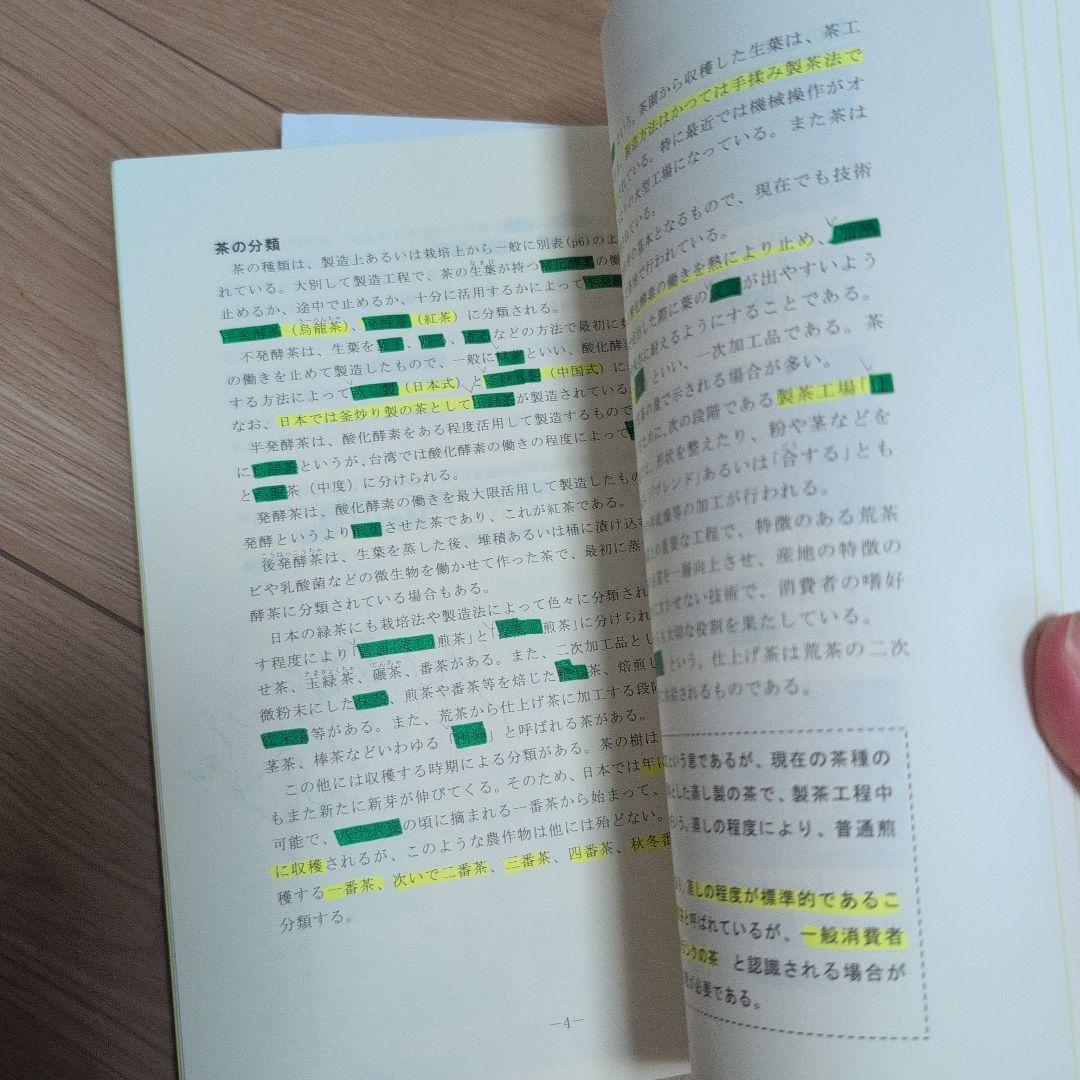 茶の分類
茶の種類は、製造上あるいは栽培上から一般に別表(p6)のよ
れている。大別して製造工程で、茶の生葉が持つ酸化酵素の働
止めるか、途中で止めるか、十分に活用するかによって不発酵
半発酵茶（烏龍茶）、発酵茶（紅茶）に分類される。
不発酵茶は、生葉を蒸す、炒る、煮るなどの方法で最初に
の働きを止めて製造したもので、一般に緑茶といい、酸化酵素
する方法によって蒸し製（日本式）と釜炒り製（中国式）に
なお、日本では釜炒り製の茶として玉緑茶が製造されている
半発酵茶は、酸化酵素をある程度活用して製造するもので
に烏龍茶というが、台湾では酸化酵素の働きの程度によって
と烏龍茶（中度）に分けられる。
発酵茶は、酸化酵素の働きを最大限活用して製造したもの
発酵というより酸化させた茶であり、これが紅茶である。
後発酵茶は、生葉を蒸した後、堆積あるいは桶に漬け込
ビや乳酸菌などの微生物を働かせて作った茶で、最初に蒸
酵茶に分類されている場合もある。
日本の緑茶にも栽培法や製造法によって色々に分類され
す程度により「普通(蒸し)煎茶」と「深蒸し煎茶」に分けられ
せ茶、玉緑茶、碾茶、番茶がある。また、二次加工品とし
微粉末にした抹茶、煎茶や番茶等を焙じた茶、焙煎し
玄米茶等がある。また、荒茶から仕上げ茶に加工する段階
茎茶、棒茶などいわゆる「出物」と呼ばれる茶がある。
この他には収穫する時期による分類がある。茶の樹は
もまた新たに新芽が伸びてくる。そのため、日本では年に
可能で、八十八夜の頃に摘まれる一番茶から始まって、
に収穫されるが、このような農作物は他には殆どない。
穫する一番茶、次いで二番茶、三番茶、四番茶、秋冬番
分類する。
―4―
という。茶園から収穫した生葉は、茶工
製造方法はかつては手揉み製茶法で
れている。特に最近では機械操作がオ
の大型工場になっている。また茶は
ている。
の基本となるもので、現在でも技術
で行われている。
酵素の働きを熱により止め、加熱
出した際に葉のが出やすいよう
に耐えるようにすることである。
といい、一次加工品である。茶
の量で示される場合が多い。
ために、次の段階である製茶工場「仕
、形状を整えたり、粉や茎などを
「ブレンド」あるいは「合する」とも
乾燥等の加工が行われる。
の重要な工程で、特徴のある荒茶
を一層向上させ、産地の特徴の
欠かせない技術で、消費者の嗜好
大切な役割を果たしている。
という。仕上げ茶は荒茶の二次
されるものである。
という言であるが、現在の茶種の
とした蒸し製の茶で、製茶工程中
いう。蒸しの程度により、普通煎
蒸しの程度が標準的であるこ
と呼ばれているが、一般消費者
ランクの茶 と認識される場合が
が必要である。